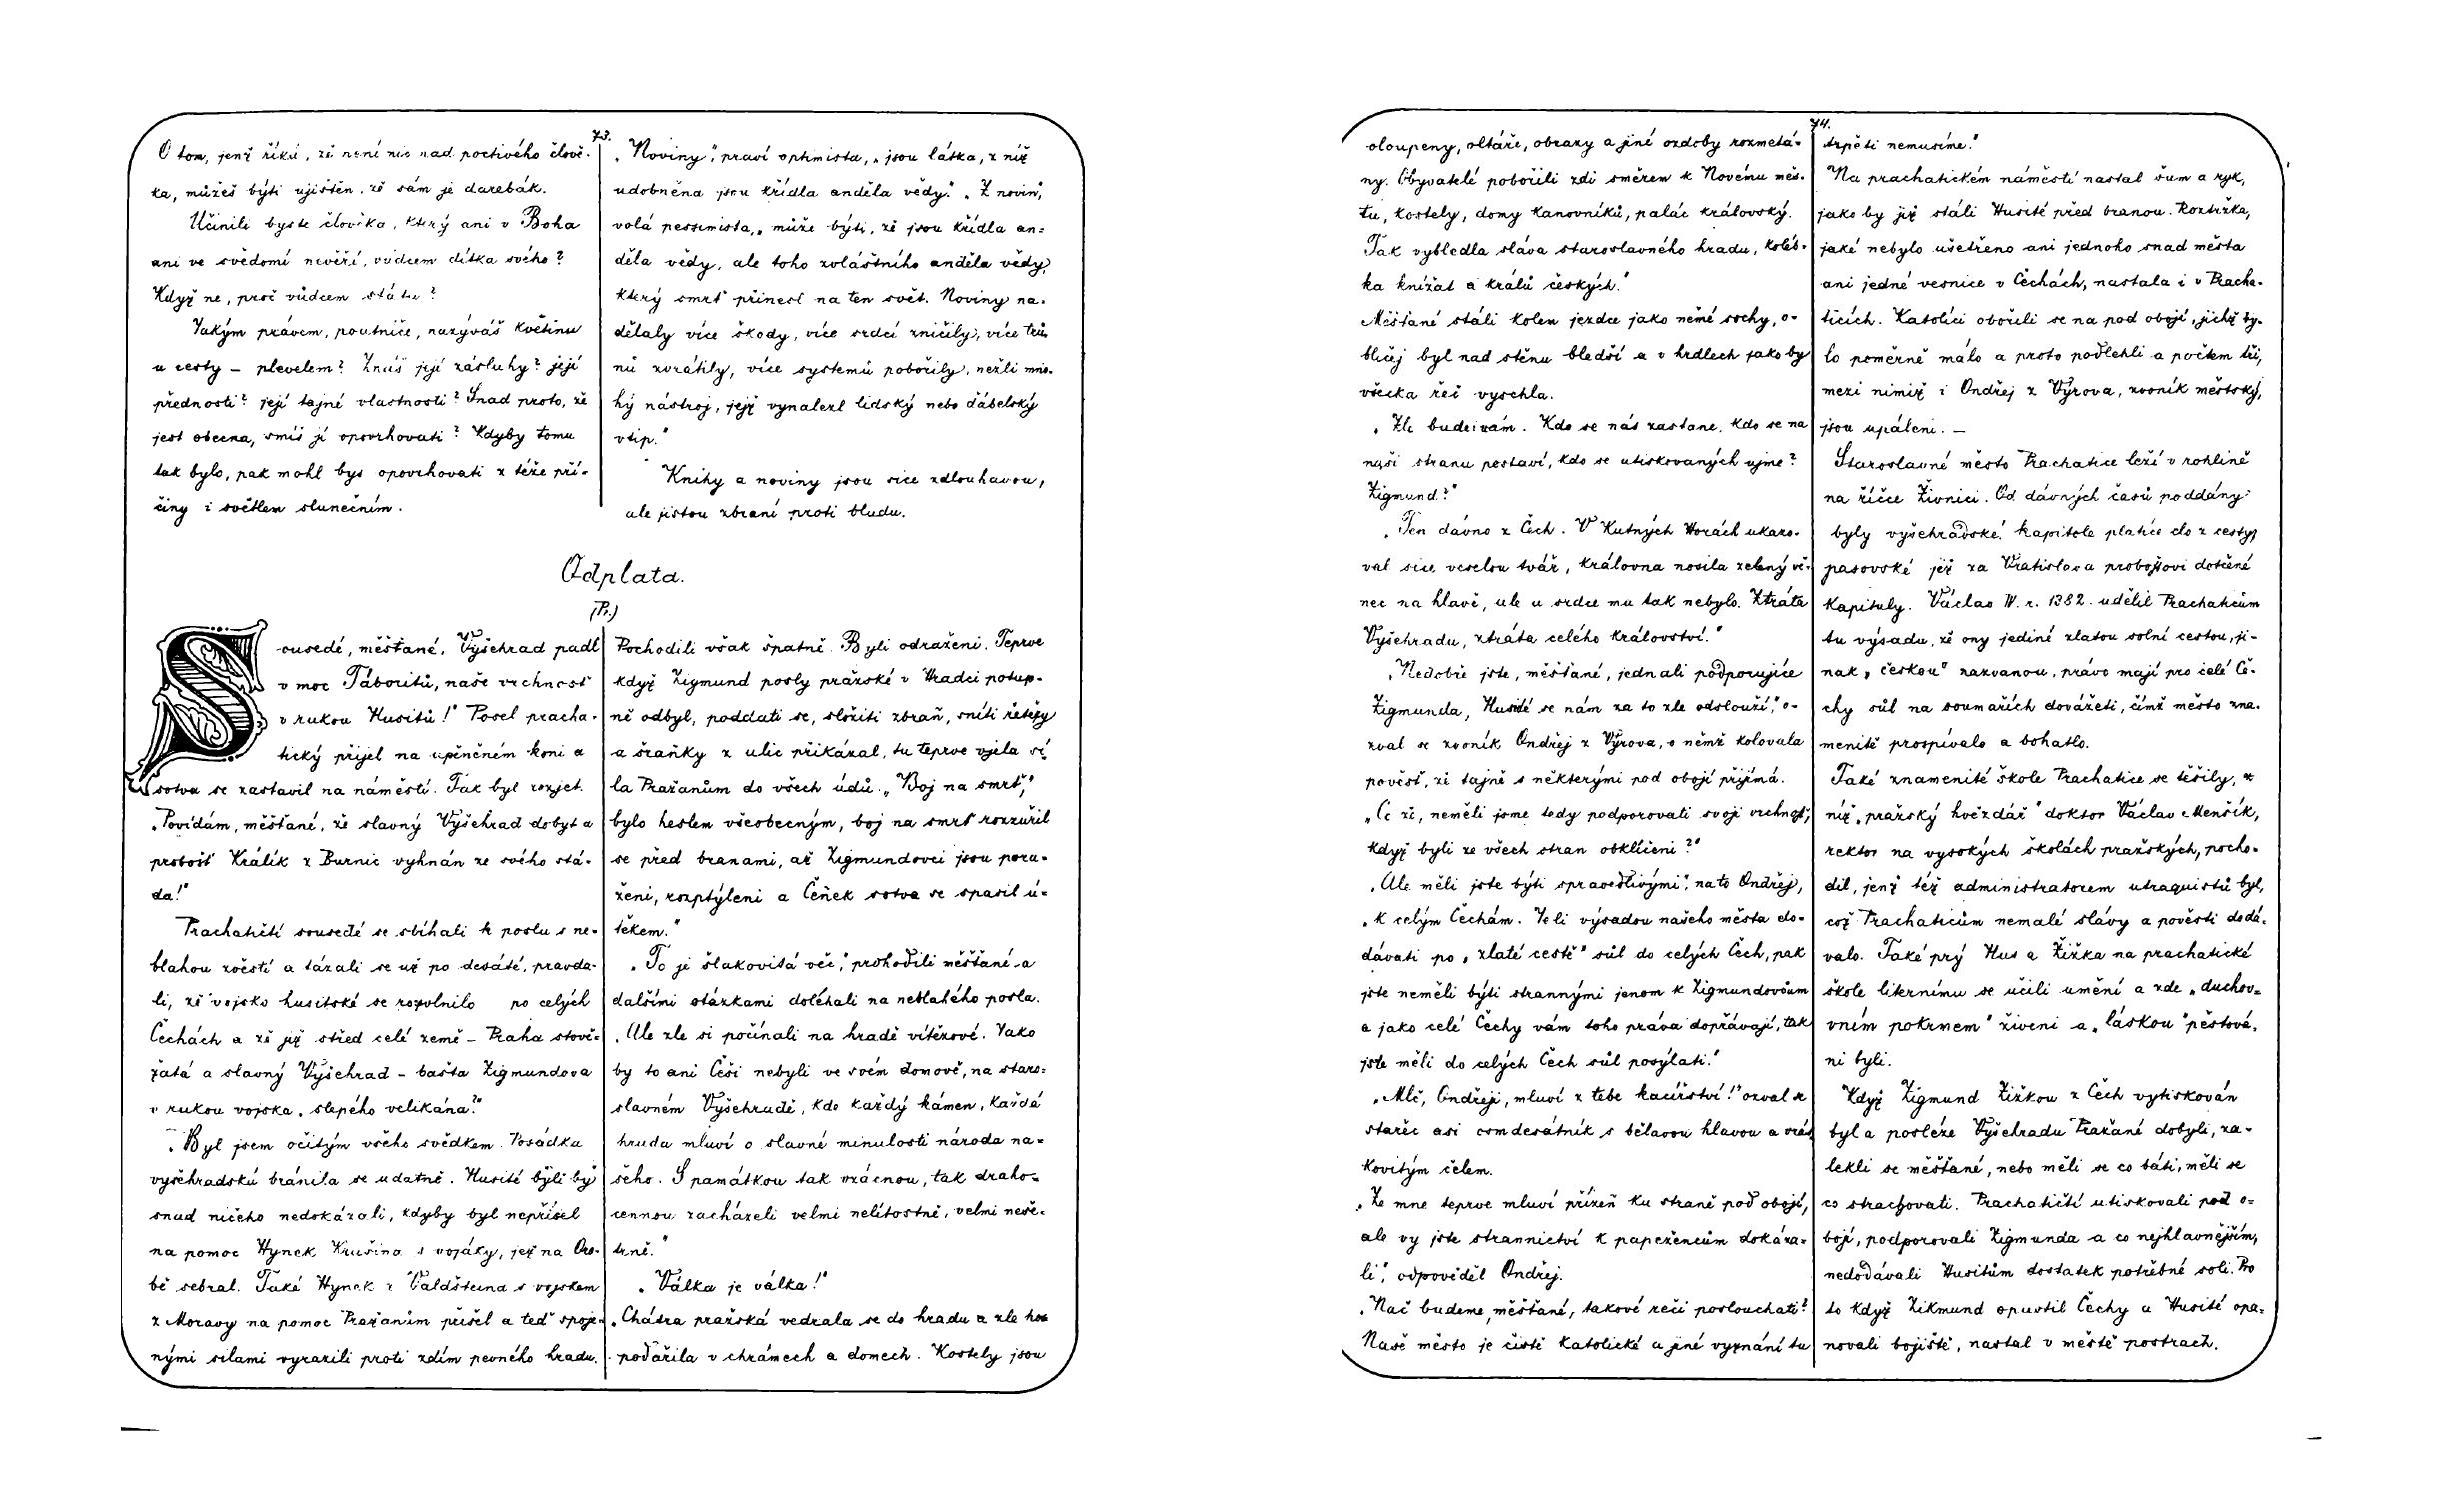 73.
O tom, jenž říká, že není nic nad poctivého člově-
ka, můžeš býti ujištěn, že sám je darebák.
Učinili byste člověka, který ani v Boha
ani ve svědomí nevěří, vůdcem dítka svého?
Když ne, proč vůdcem státu?
Jakým právem, poutníče, nazýváš květinu
u cesty – plevelem? Znáš její zásluhy? její
přednosti? její tajné vlastnosti? Snad proto, že
jest obecna, smíš jí opovrhovati? Kdyby tomu
tak bylo, pak mohl bys opovrhovati z téže pří-
činy i světlem slunečním.
„Noviny", praví optimista, „jsou látka, z níž
udobněna jsou křídla anděla vědy." „Z novin",
volá pessimista, „může býti, že jsou křídla an=
děla vědy, ale toho zvláštního anděla vědy,
který smrť přinesl na ten svět. Noviny na-
dělaly více škody, více srdcí zničily, více trů
nů zvrátily, více systemů pobořily, nežli mno-
hý nástroj, jejž vynalezl lidský nebo ďábelský
vtip."
Knihy a noviny jsou sice zdlouhavou,
ale jistou zbraní proti bludu.
Odplata.
(Pr.)
Sousedé, měšťané, Vyšehrad padl
v moc Táboritů, naše vrchnosť
v rukou Husitů!" Posel pracha-
tický přijel na upěněném koni a
sotva se zastavil na náměstí. Tak byl rozjet.
„Povídám, měšťané, že slavný Vyšehrad dobyt a
probošť Králík z Buřnic vyhnán ze svého stá-
da!"
Prachatičtí sousedé se sbíhali k poslu s ne-
blahou zvěstí a tázali se už po desáté, pravda-
li, že vojsko husitské se rozvolnilo po celých
Čechách a že již střed celé země – Praha stově-
žatá a slavný Vyšehrad – bašta Zigmundova
v rukou vojska „slepého velikána?"
„Byl jsem očitým všeho svědkem. Posádka
vyšehradská bránila se udatně. Husité byli by
snad ničeho nedokázali, kdyby byl nepřišel
na pomoc Hynek Krušina s vojáky, jež na Oro-
bě sebral. Také Hynek z Valdšteina s vojskem
z Moravy na pomoc Pražanům přišel a teď spoje-
nými silami vyrazili proti zdím pevného hradu.
Pochodili však špatně. Byli odraženi. Teprve
když Zigmund posly pražské v Hradci potup-
ně odbyl, poddati se, složiti zbraň, sníti řetězy
a šraňky z ulic přikázal, tu teprve vjela sí-
la Pražanům do všech údů. „Boj na smrť",
bylo heslem všeobecným, boj na smrť rozzuřil
se před branami, až Zigmundovci jsou pora-
ženi, rozptýleni a Čeněk sotva se spasil ú-
těkem."
„To je šlakovitá věc," prohodili měšťané a
dalšími otázkami doléhali na neblahého posla.
„Ale zle si počínali na hradě vítězové. Jako
by to ani Češi nebyli ve svém domově, na staro=
slavném Vyšehradě, kde každý kámen, každá
hruda mluví o slavné minulosti národa na-
šeho. S památkou tak vzácnou, tak draho-
cennou zacházeli velmi nelítostně, velmi neše-
trně."
„Válka je válka!"
„Chásra pražská vedrala se do hradu a zle hos
podařila v chrámech a domech. Kostely jsou
74.
oloupeny, oltáře, obrazy a jiné ozdoby rozmetá-
ny. Obyvatelé pobořili zdi směrem k Novému měs-
tu, kostely, domy kanovníků, palác královský.
Tak vybledla sláva staroslavného hradu, koléb-
ka knížat a králů českých."
Měšťané stáli kolem jezdce jako němé sochy, o-
bličej byl nad stěnu bledší a v hrdlech jako by
všecka řeč vyschla.
„Zle bude i vám. Kdo se nás zastane, kdo se na
naši stranu postaví, kdo se utiskovaných ujme?
Zigmund?"
„Ten dávno z Čech. V Kutných Horách ukazo-
val sice veselou tvář, královna nosila zelený vě-
nec na hlavě, ale u srdce mu tak nebylo. Ztráta
Vyšehradu, ztráta celého království."
„Nedobře jste, měšťané, jednali podporujíce
Zigmunda, Husité se nám za to zle odslouží," o-
zval se zvoník Ondřej z Výrova, o němž kolovala
pověsť, že tajně s některými pod obojí přijímá.
„Což, neměli jsme tedy podporovati svoji vrchnosť,
když byli ze všech stran obklíčeni?"
„Ale měli jste býti spravedlivými", na to Ondřej,
„k celým Čechám. Je-li výsadou našeho města do-
dávati po „zlaté cestě" sůl do celých Čech, pak
jste neměli býti strannými jenom k Zigmundovcům
a jako celé Čechy vám toho práva dopřávají, tak
jste měli do celých Čech sůl posýlati."
„Mlč, Ondřeji, mluví z tebe kacířství!" ozval se
stařec asi osmdesátník s bělavou hlavou a vrás
kovitým čelem.
„Ze mne teprve mluví přízeň ku straně pod obojí,
ale vy jste strannictví k papežencům dokáza-
li", odpověděl Ondřej.
„Nač budeme, měšťané, takové řeči poslouchati?
Naše město je čistě katolické a jiné vyznání tu
trpěti nemusíme."
Na prachatickém náměstí nastal šum a ryk,
jako by již stáli Husité před branou. Roztržka,
jaké nebylo ušetřeno ani jednoho snad města
ani jedné vesnice v Čechách, nastala i v Pracha-
ticích. Katolíci obořili se na pod obojí, jichž by-
lo poměrně málo a proto podlehli a počtem tři,
mezi nimiž i Ondřej z Výrova, zvoník městský,
jsou upáleni. –
Staroslavné město Prachatice leží v rohlině
na říčce Živnici. Od dávných časů poddány
byly vyšehradské kapitole platíce clo z cesty
pasovské jež za Vratislava proboštovi dotčené
kapituly. Václav IV. r. 1382. udělil Prachaticům
tu výsadu, že ony jediné zlatou solní cestou, ji-
nak „českou" nazvanou, právo mají pro celé Če-
chy sůl na soumařích dovážeti, čímž město zna-
menitě prospívalo a bohatlo.
Také znamenité škole Prachatice se těšily, z
níž „pražský hvězdář" doktor Václav Menšík,
rektor na vysokých školách pražských, pocho-
dil, jenž též administratorem utraquistů byl,
což Prachaticům nemalé slávy a pověsti dodá-
valo. Také prý Hus a Žižka na prachatické
škole liternímu se učili umění a zde „duchov=
vním pokrmem" živeni a „láskou" pěstová-
ni byli.
Když Zigmund Žižkou z Čech vytiskován
byl a posléze Vyšehradu Pražané dobyli, za-
lekli se měšťané, nebo měli se co báti, měli se
co strachovati. Prachatičtí utiskovali pod o-
bojí, podporovali Zigmunda a co nejhlavnějším,
nedodávali Husitům dostatek potřebné soli. Pro
to když Zikmund opustil Čechy a Husité opa-
novali bojiště, nastal v městě postrach.